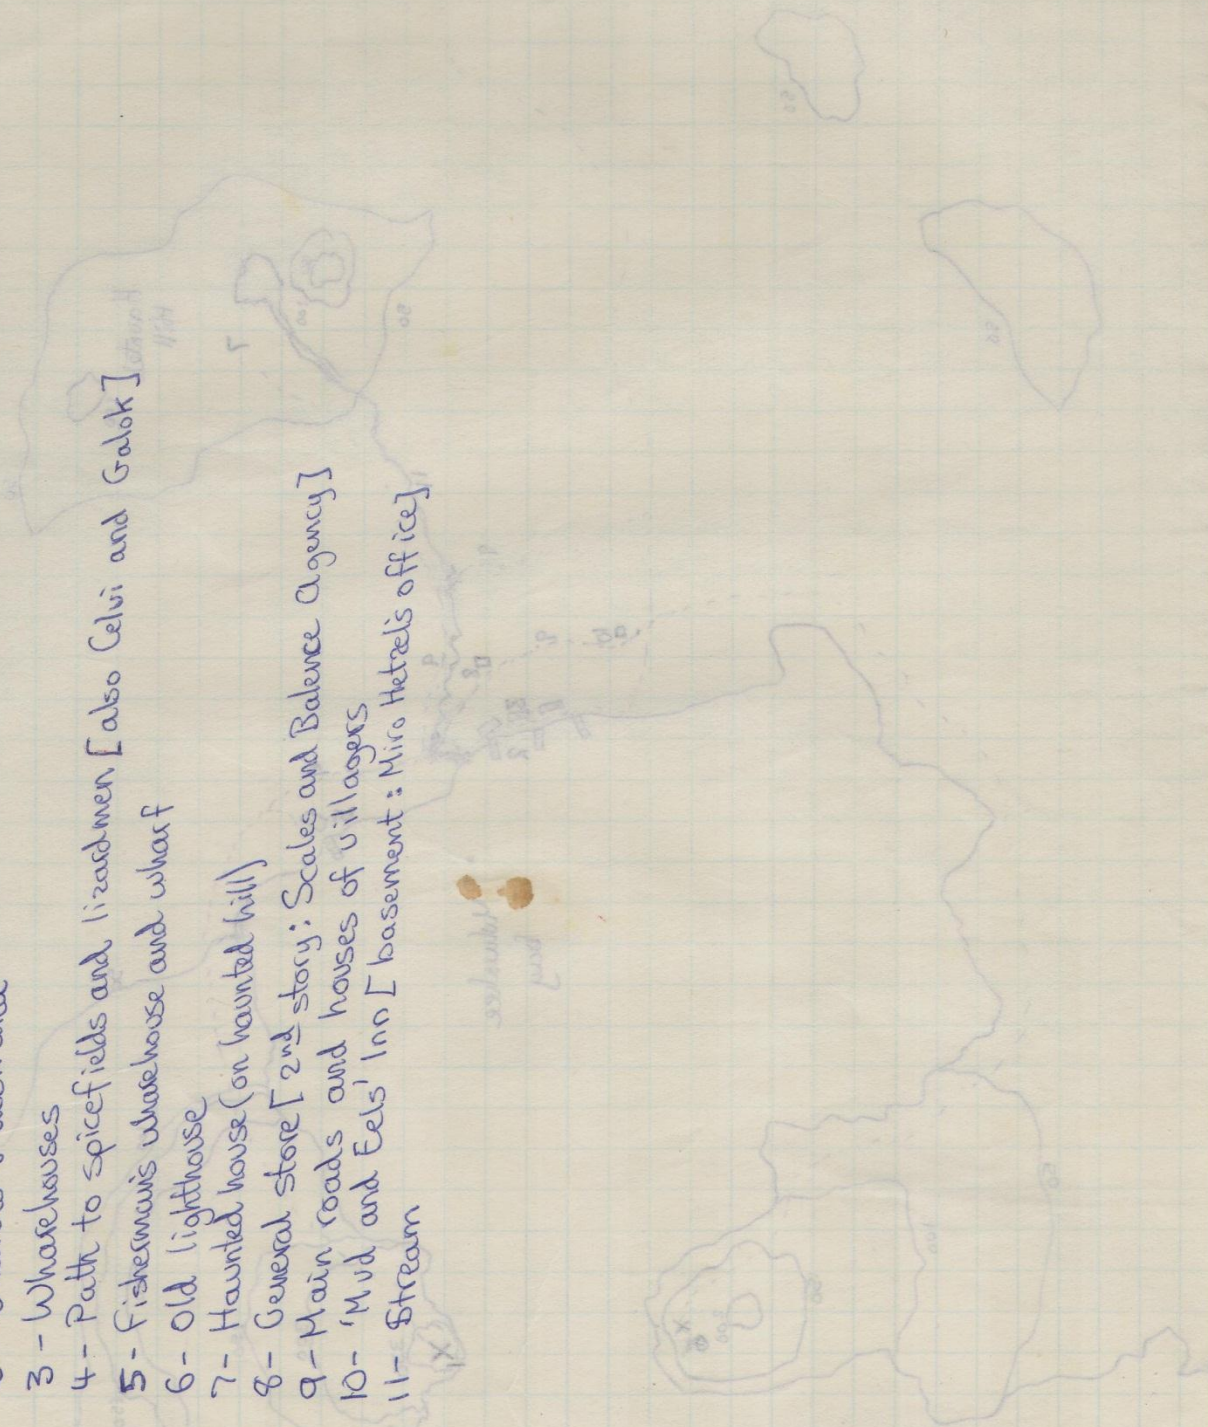 3 - Wharehouses
4 - Path to spicefields and lizardmen [also Celvi and Galok]
5 - Fishermains wharehouse and wharf
6 - Old lighthouse
7 - Haunted house (on haunted hill)
8 - General store [2nd story: Scales and Balence Agency]
9 - Main roads and houses of villagers
10 - 'Mud and Eels' Inn [basement: Miro Hetzel's office]
11 - Stream